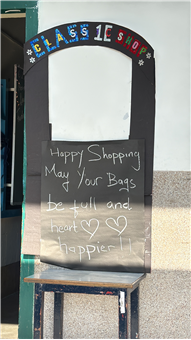 CLASS 1E SHOP
Happy Shopping
May Your Bags
be full and
heart
happier!!!